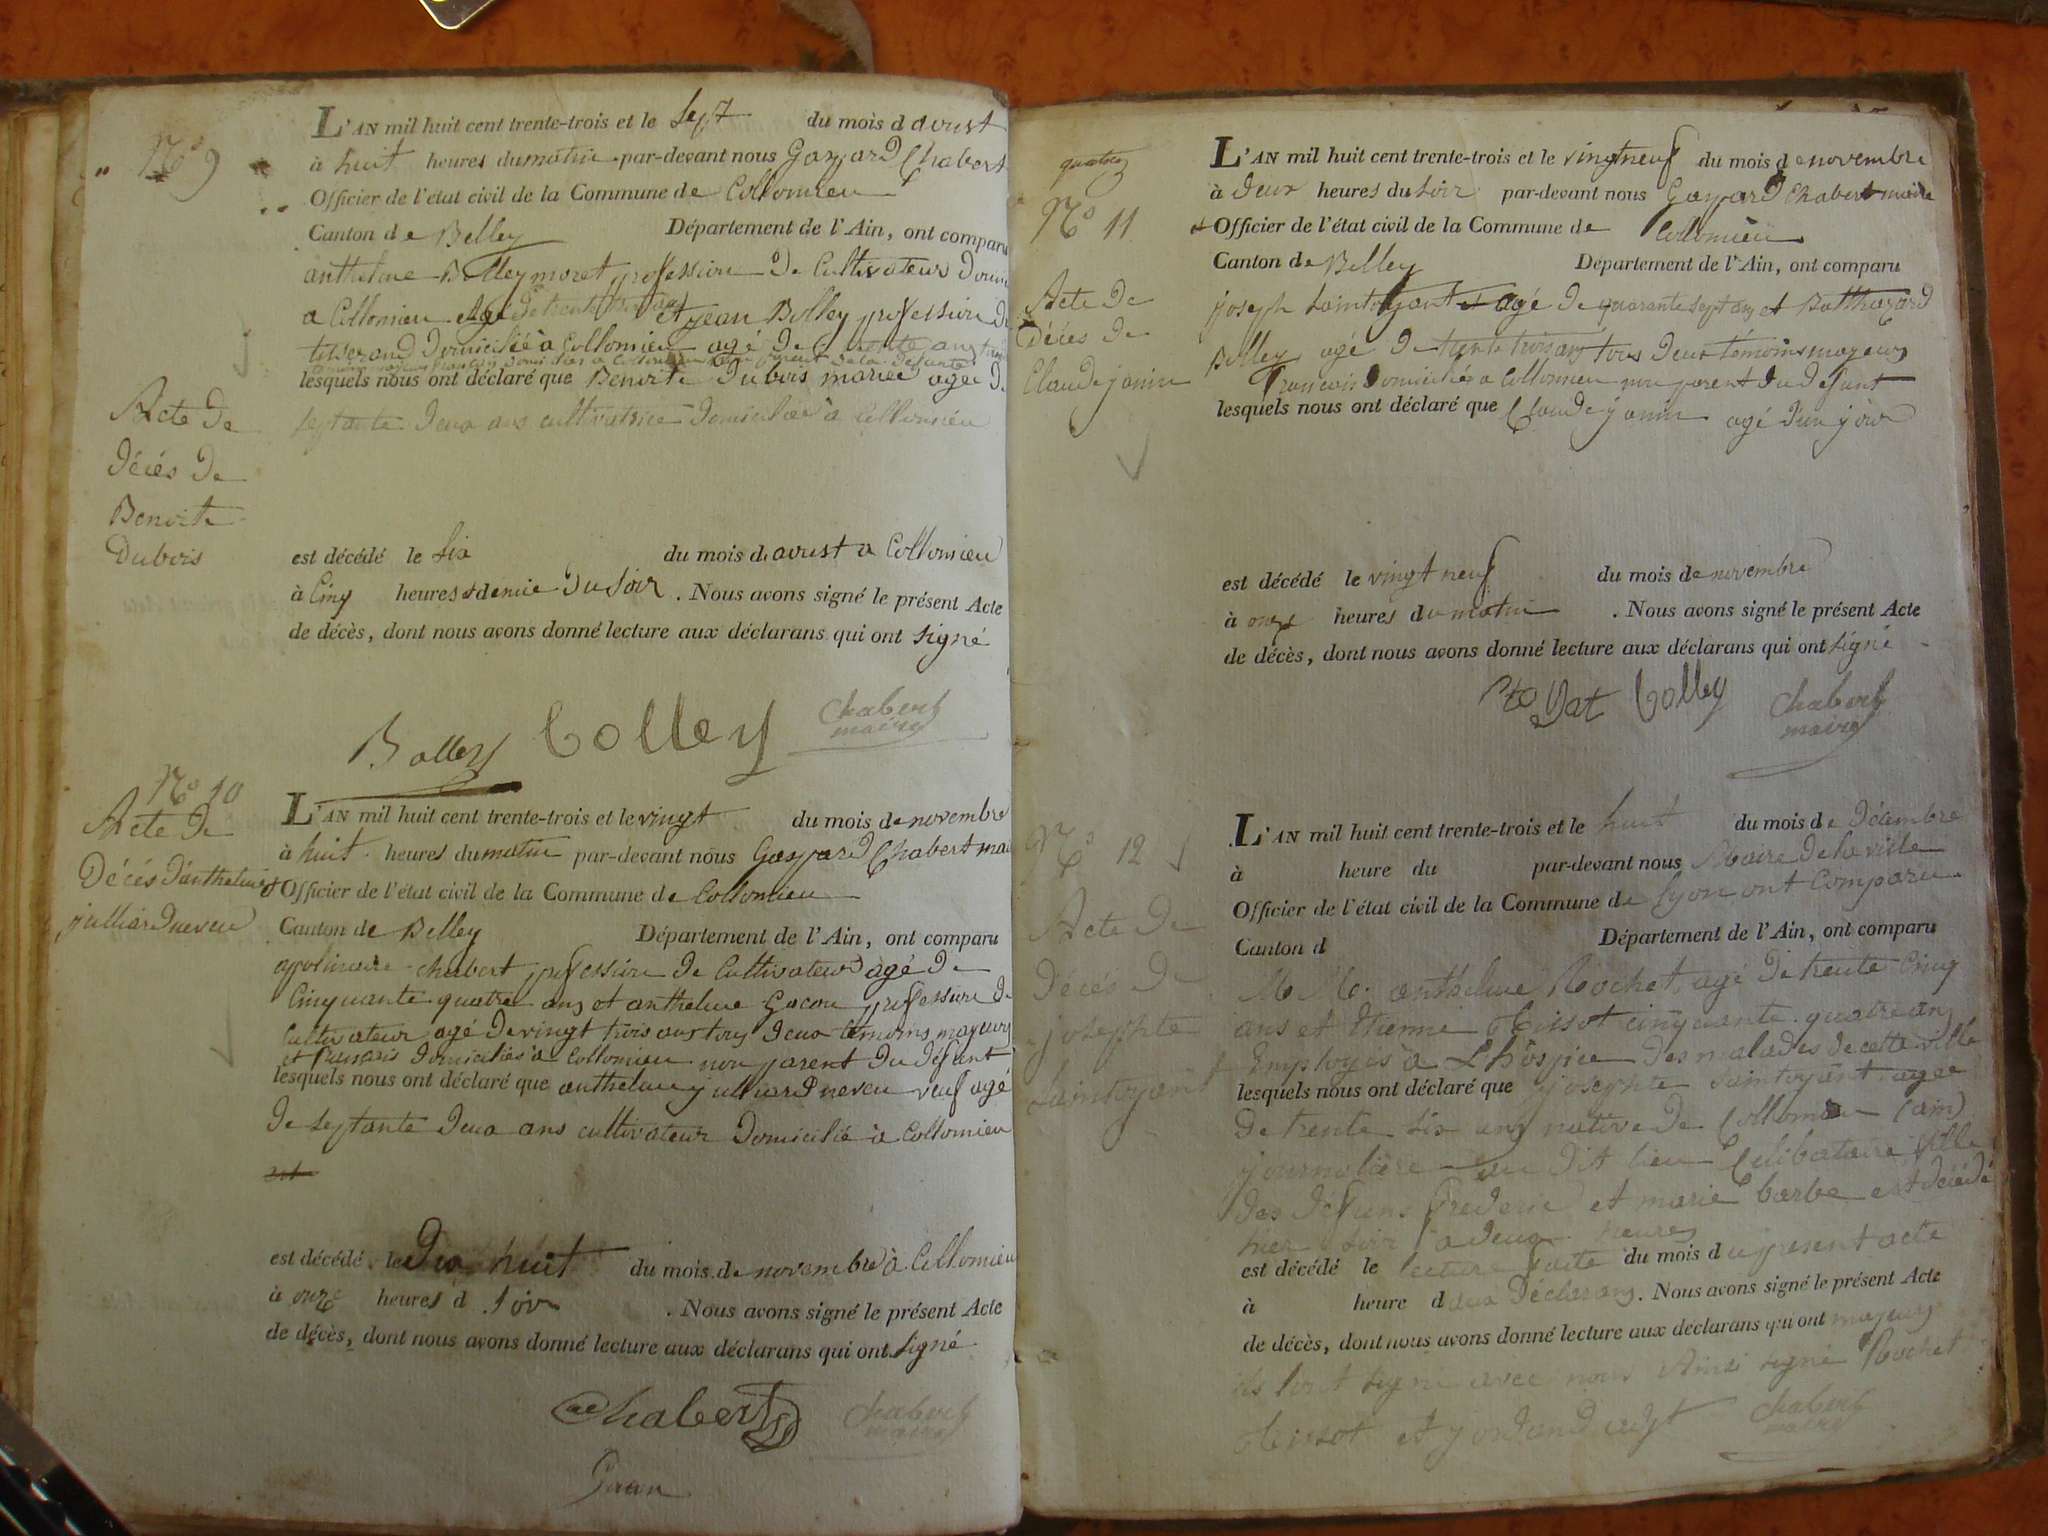 N° 9
L'AN mil huit cent trente-trois et le sept du mois d avust
à huit heures du matin par-devant nous Gaspard Chabert
Officier de l'état civil de la Commune de Collomieu
Canton de Belley Département de l'Ain, ont comparu
anthelme Belley moret profession de Cultivateur domi
a Collomieu et jean Belley profession de
tisserand Domicilié à Collomieu agé de
lesquels nous ont déclaré que Benoite Dubois mariée agée de
septante deux ans cultivatrice domiciliée à Collomieu
Acte de
Décés de
Benoite
Dubois
est décédé le six du mois d avust a Collomieu
à Cinq heures et demie du soir . Nous avons signé le présent Acte
de décès, dont nous avons donné lecture aux déclarans qui ont signé
Bolley bolley Chabert
maire
N° 10
Acte de
Décés d'anthelme
julliard neveu
L'AN mil huit cent trente-trois et le vingt du mois de novembre
à huit heures du matin par-devant nous Gaspard Chabert mai
Officier de l'état civil de la Commune de Collomieu
Canton de Belley Département de l'Ain, ont comparu
appolinaire chabert profession de Cultivateur agé de
Cinquante quatre ans et anthelme Gacon profession de
Cultivateur agé de vingt trois ans tous deux témoins majeurs
et francais domiciliés à Collomieu non parent du défunt
lesquels nous ont déclaré que anthelme julliard neveu veuf agé
de septante deux ans cultivateur Domicilié à Collomieu
est décédé le dix huit du mois de novembre à Collomieu
à onze heures d soir . Nous avons signé le présent Acte
de décès, dont nous avons donné lecture aux déclarans qui ont signé
Chabert Chabert
maire
quatorz
N° 11
Acte de
Décés de
Claude janin
L'AN mil huit cent trente-trois et le vingt neuf du mois de novembre
à deux heures du soir par-devant nous Gaspard Chabert maire
Officier de l'état civil de la Commune de Collomieu
Canton de Belley Département de l'Ain, ont comparu
joseph Saintoyant et agé de quarante sept ans et Balthazard
Belley agé de trente trois ans tous deux témoins majeurs
francais Domiciliés a Collomieu non parent du défunt
lesquels nous ont déclaré que Claude janin agé d'un jour
est décédé le vingt neuf du mois de novembre
à onze heures du matin . Nous avons signé le présent Acte
de décès, dont nous avons donné lecture aux déclarans qui ont signé
bolley Chabert
maire
N° 12
Acte de
Décés de
josephte
Saintoyant
L'AN mil huit cent trente-trois et le huit du mois de décembre
à heure du par-devant nous Maire de la ville
Officier de l'état civil de la Commune de Lyon ont Comparu
Canton d Département de l'Ain, ont comparu
M M. anthelme Rochet agé de trente Cinq
ans et Etienne Tissot cinquante quatre ans
Employés à L'hospice des malades de cette ville
lesquels nous ont déclaré que josephte Saintoyant agée
de trente six ans native de Collomieu (ain)
journaliere au dit lieu Celibataire fille
des défuns frederic et marie barbe est décédé
hier soir a deux heures
est décédé le lecture faite du mois d u present acte
à heure d aux Déclarans . Nous avons signé le présent Acte
de décès, dont nous avons donné lecture aux déclarans qui ont majeurs
ils l'ont signé avec nous Ainsi signé Rochet
Tissot et
Chabert
maire